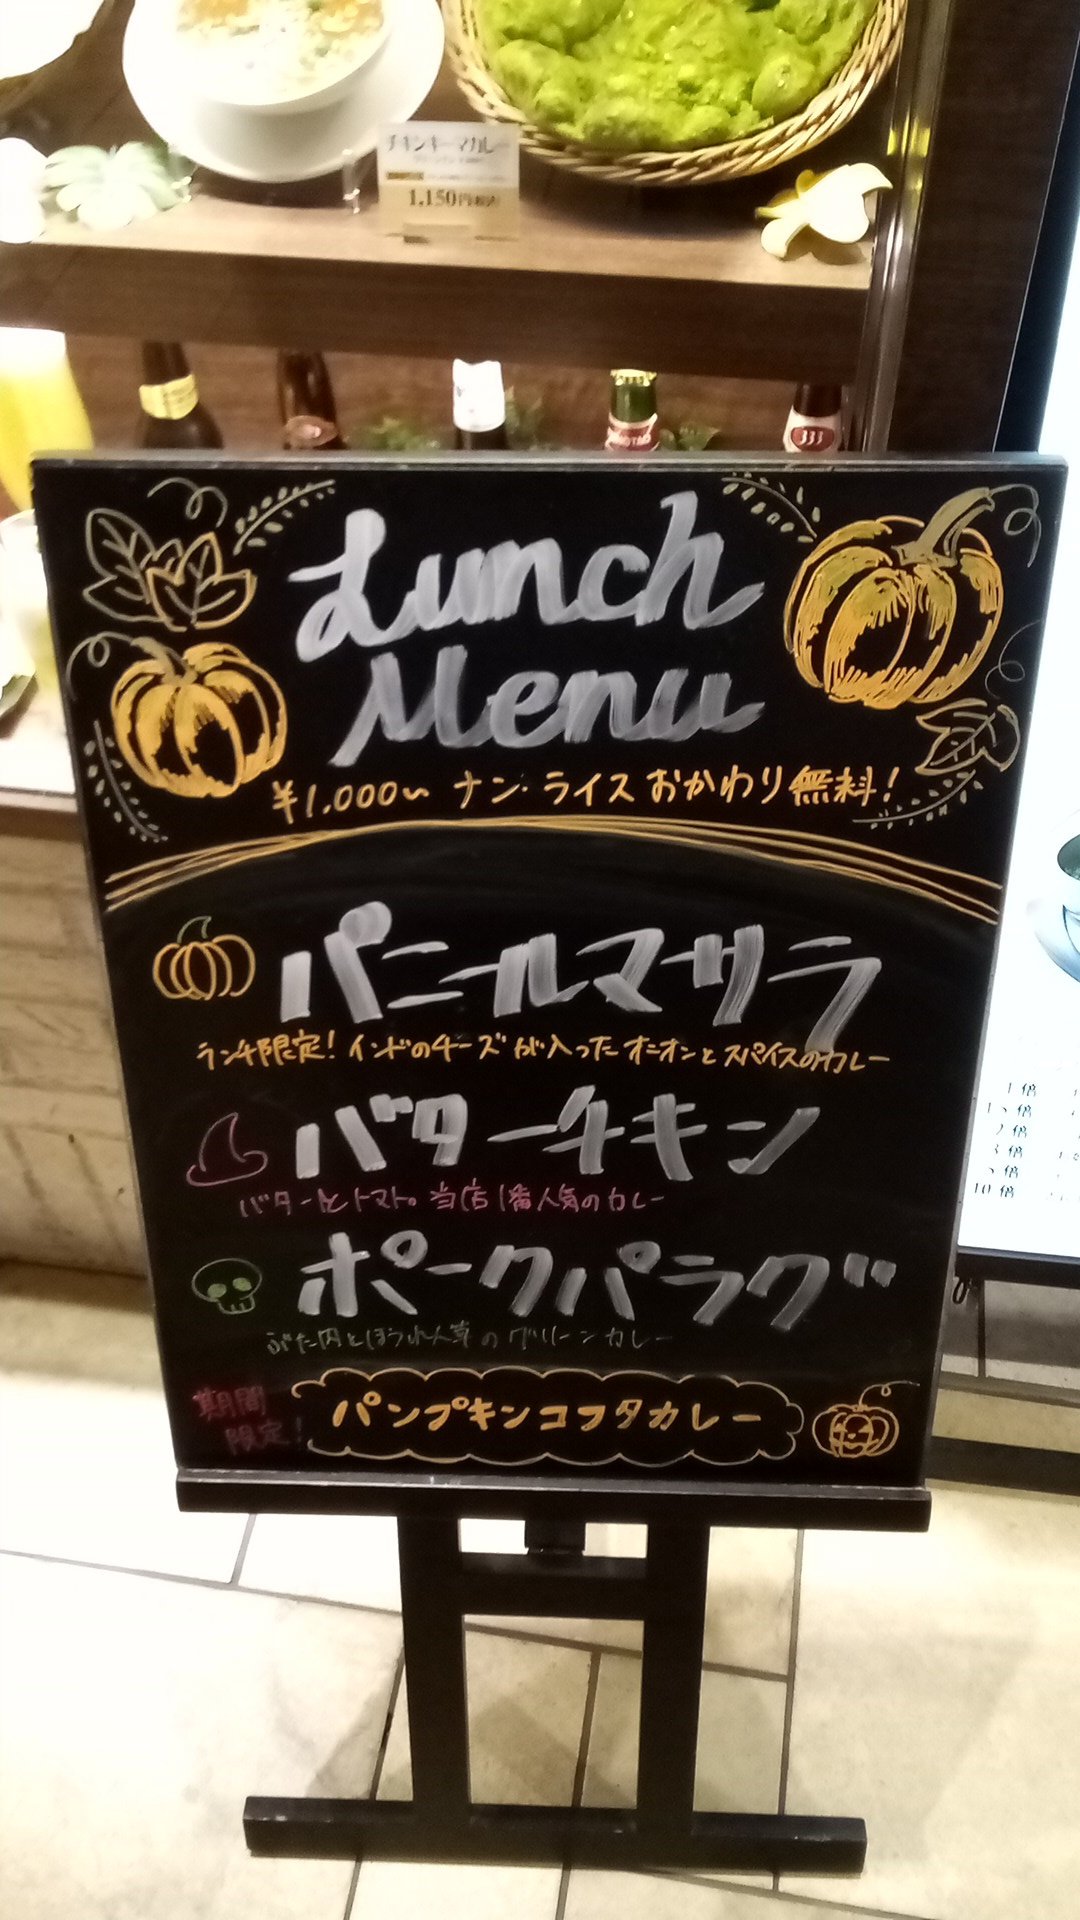 チキンキーマカレー
1,150円
333
Lunch
Menu
¥1,000~ ナン・ライス おかわり無料!
パニールマサラ
ランチ限定! インドのチーズが入ったオニオンとスパイスのカレー
バターチキン
バターとトマト。当店1番人気のカレー
ポークパラグ
ぶた肉とほうれん草のグリーンカレー
期間
限定!
パンプキンコフタカレー
1倍
2倍
3倍
5倍
10倍